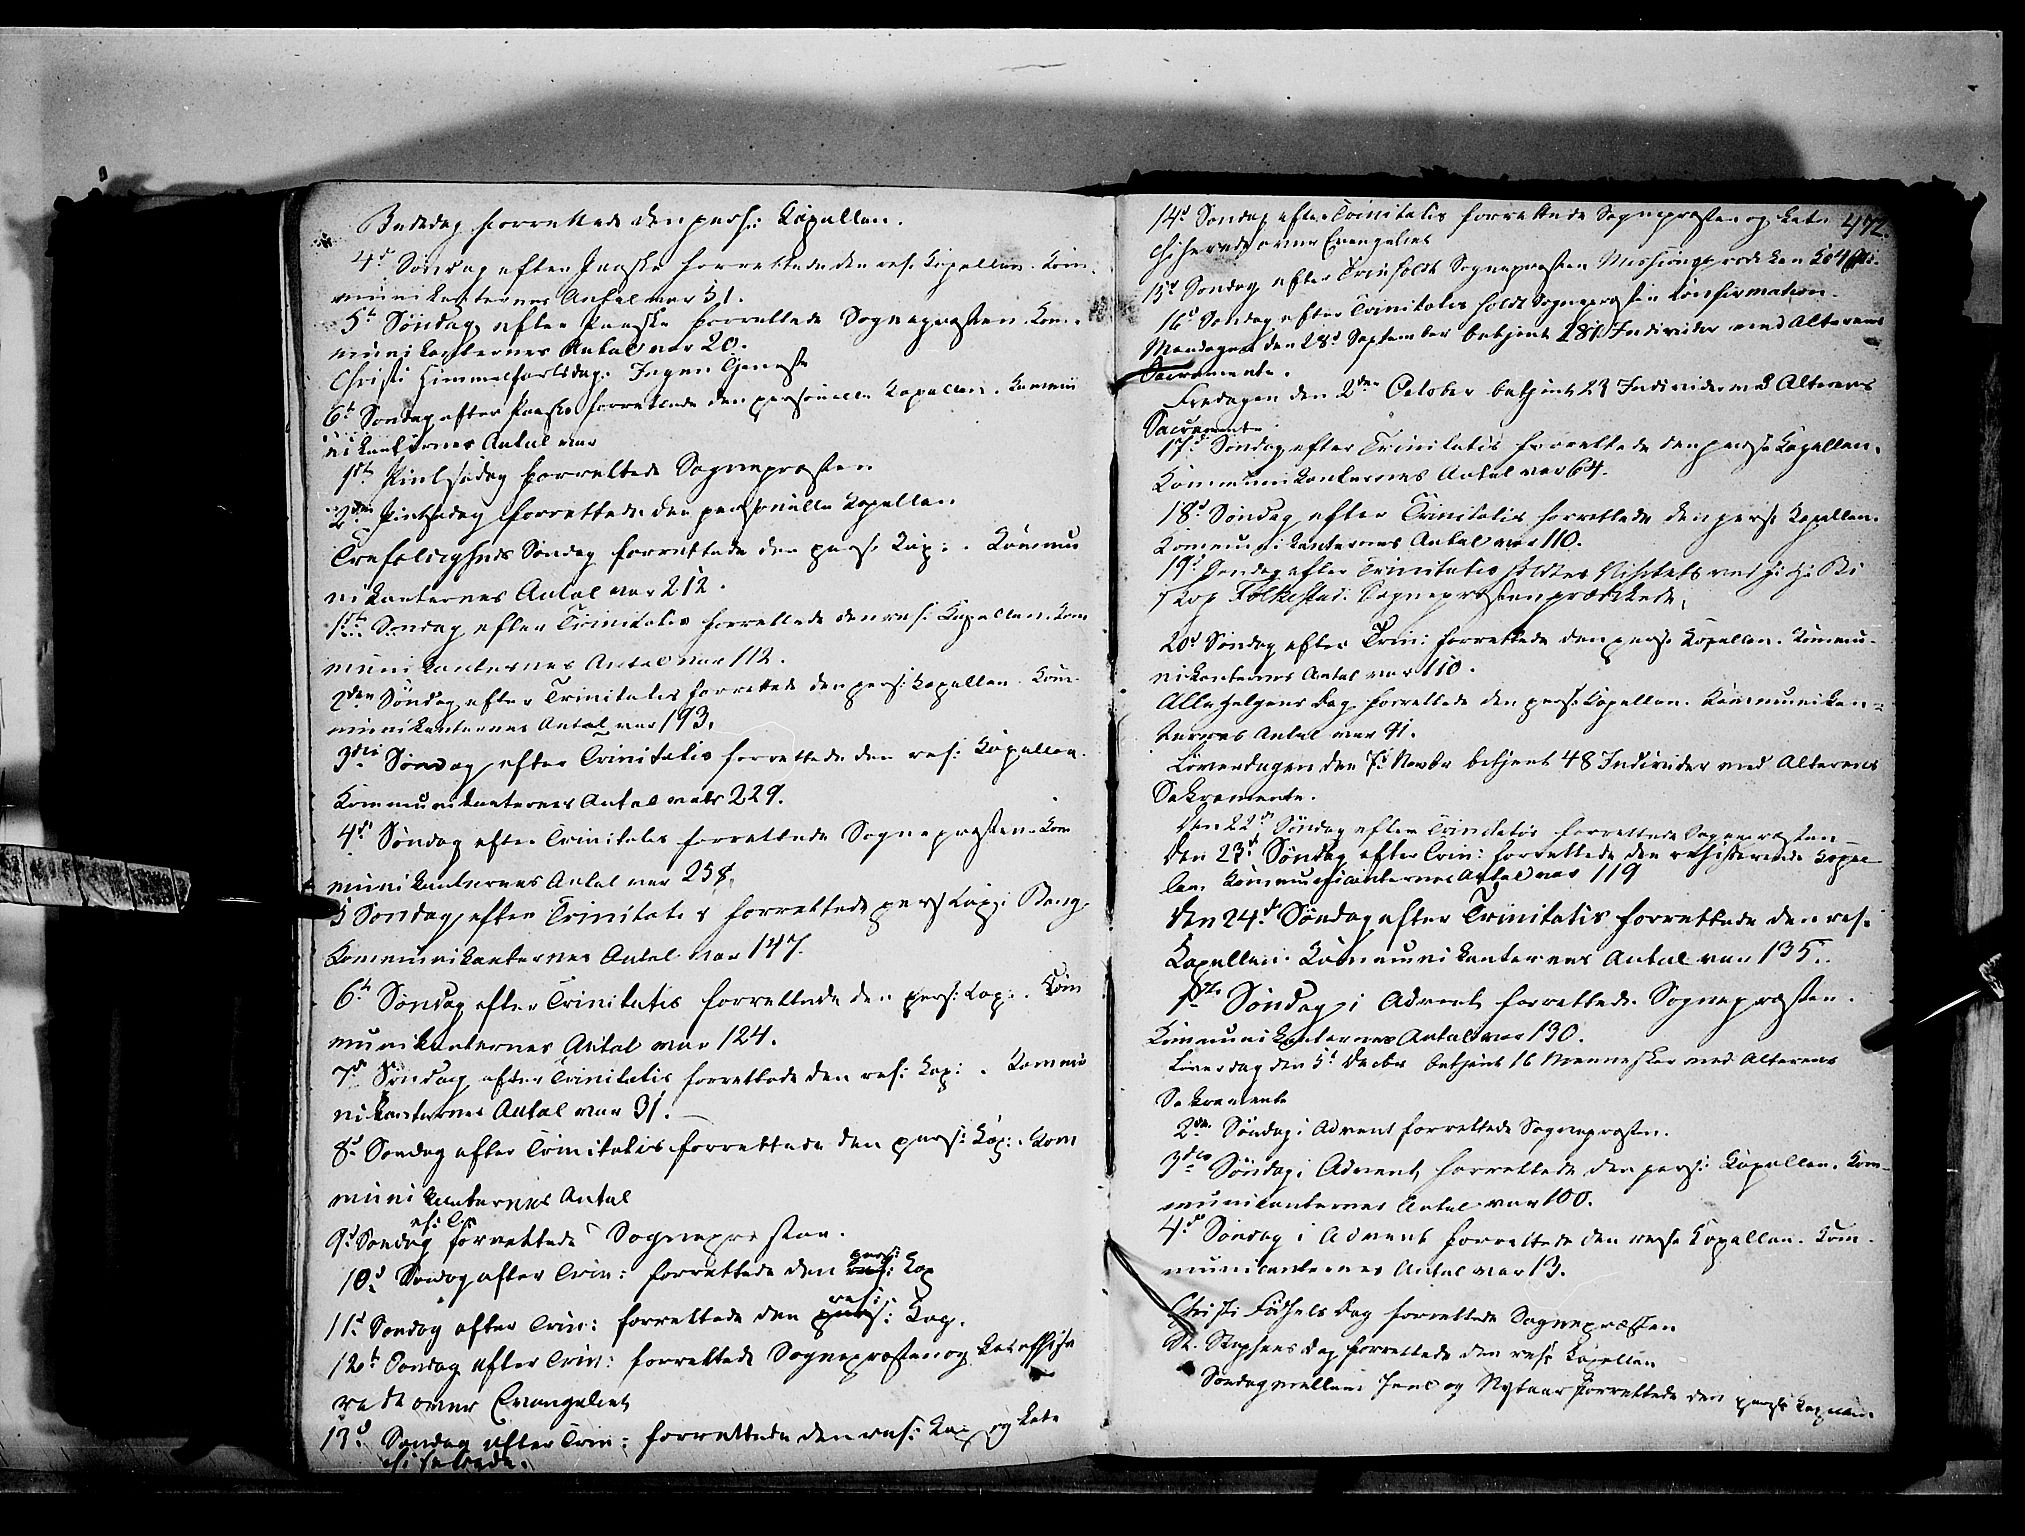 Bededag forrettede den pers: Kapellan.
4d Søndag efter Paaske forrettede den res: Kapellan. Kom-
munikanternes Antal var 51.
5te Søndag efter Paaske forrettede Sognepresten. Kom-
munikanternes Antal var 20.
Christi Himmelfartsdag. Ingen Tjeneste
6te Søndag efter Paaske forrettede den personelle Kapellan. Kommu
nikanternes Antal var
1ste Pintsedag forrettede Sognepræsten
2den Pintsedag forrettede den personelle Kapellan
Trefoldigheds Søndag forrettede den pers. Kap: . Kommu
nikanternes Antal var 212.
1ste Søndag efter Trinitatis forrettede den res: Kapellan. Kom
munikanternes Antal var 112.
2den Søndag efter Trinitatis forrettede den pers: Kapellan. Kom-
munikanternes Antal var 193.
3die Søndag efter Trinitatis forrettede den res: Kapellan.
Kommunikanternes Antal var 229.
4de Søndag efter Trinitatis forrettede Sognepræsten. Kom
munikanternes Antal var 258.
5 Søndag efter Trinitatis forrettede pers Kap:
Kommunikanternes Antal var 147.
6te Søndag efter Trinitatis forrettede den pers: Kap: . Kom
munikanternes Antal var 124.
7de Søndag efter Trinitatis forrettede den res: Kap: . Kommu
nikanternes Antal var 31.
8d Søndag efter Trinitatis forrettede den pers: Kap: . Kom
munikanternes Antal
9d Søndag forrettede Sognepresten.
10d Søndag efter Trin: forrettede den pers: Kap
11d Søndag efter Trin: forrettede den res: Kap.
12te Søndag efter Trin: forrettede Sognepræsten og Katechise
rede over Evangeliet
13d Søndag efter Trin: forrettede den res: Kap og Kate
chiserede.
14d Søndag efter Trinitatis forrettede Sognepræsten og kate 472.
chiserede over Evangeliet
15d Søndag efter Trin holdt Sognepræsten Missionspræken
16d Søndag efter Trinitatis holdt Sognepræsten Confirmation.
Mandagen den 28d September betjent 281 Individer med Alterens
Sacramente.
Fredagen den 2den October betjent 23 Individer m. Alterens
Sacramente
17d Søndag efter Trinitatis forrettede den pers: Kapellan.
Kommunikanternes Antal var 64.
18d Søndag efter Trinitatis forrettede den pers: Kapellan.
Kommunikanternes Antal var 110.
19d Søndag efter Trinitatis holdtes Visitats ved Hr Bi
skop Folkestad. Sognepræsten prædikede.
20d Søndag efter Trin: forrettede den pers: Kapellan. Kommu-
nikanternes Antal var 110.
Alle Helgens Dag forrettede den pers: Kapellan. Kommunikan-
ternes Antal var 91.
Løverdagen den 7d Novbr betjent 48 Individer med Alterens
Sakramente.
Den 22de Søndag efter Trinitatis forrettede Sognepræsten
Den 23d Søndag efter Trin: forrettede den residerende Kapel-
lan. Kommunicanternes Antal var 119
Den 24d Søndag efter Trinitatis forrettede den res.
Kapellan. Kommunikanternes Antal var 135.
1ste Søndag i Advent forrettede Sognepræsten.
Kommunikanternes Antal var 130.
Løverdag den 5d Decbr betjent 16 Mennesker med Alterens
Sakramente
2den Søndag i Advent forrettede Sognepræsten.
3die Søndag i Advent forrettede den pers: Kapellan. Kom-
munikanternes Antal var 100.
4de Søndag i Advent forrettede den res: Kapellan. Kom-
municanternes Antal var 13.
Christi Fødsels Dag forrettede Sognepræsten
St. Stephens Dag forrettede den res: Kapellan
Søndag mellem Juul og Nytaar forrettede den pers: Kapellan.